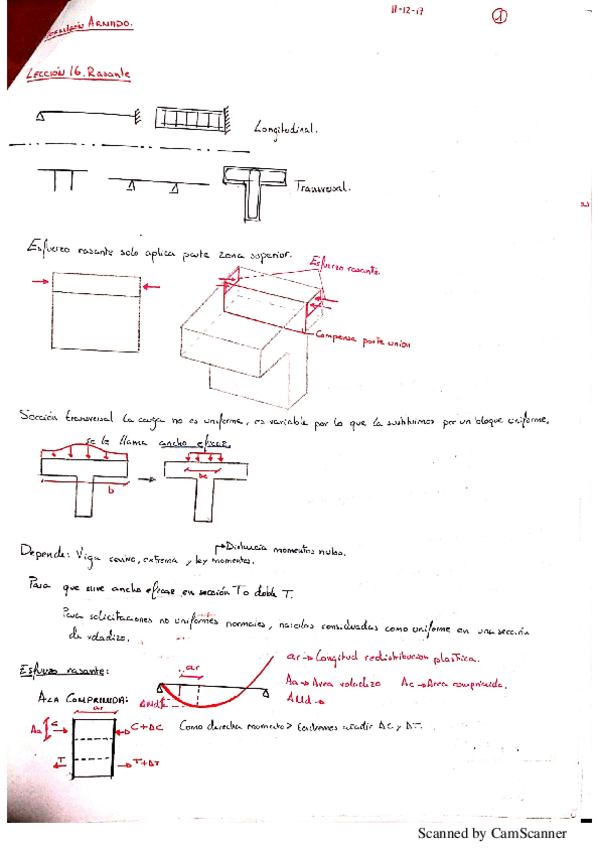 11-12-17
1
Armado.
Lección 16. Rasante
Longitudinal.
Transversal.
Esfuerzo rasante solo aplica parte zona superior.
Esfuerzo rasante
Compensa parte union
Sección transversal la carga no es uniforme, es variable por lo que la sustituimos por un bloque uniforme.
se le llama ancho eficaz.
b
Distancia momentos nulos.
Depende: Viga extrema y ley momentos.
Para que sirve ancho eficaz en sección T o doble T.
Para solicitaciones no uniformes normales, consideradas como uniforme en una sección
de voladizo.
ar → Longitud redistribucion plastica.
Esfuerzo rasante:
ar
Aa → Area voladizo Ac → Area comprimida.
Ala comprimida:
ΔMd
ΔMd →
ar
Aa
C
C+ΔC
Como derecha momento > tendremos añadir ΔC y ΔT.
T
T+ΔT
Scanned by CamScanner